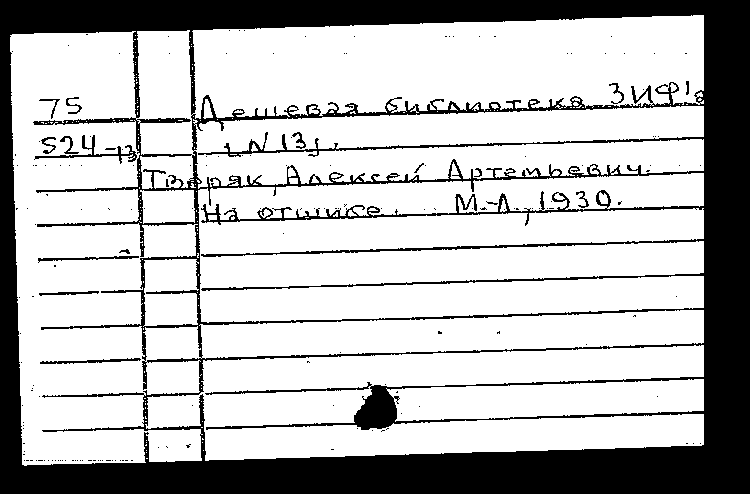 75 Дешевая библиотека ЗИФ'а
S24-13 [N 13].
Тверяк, Алексей Артемьевич.
На отшибе. М.-Л., 1930.